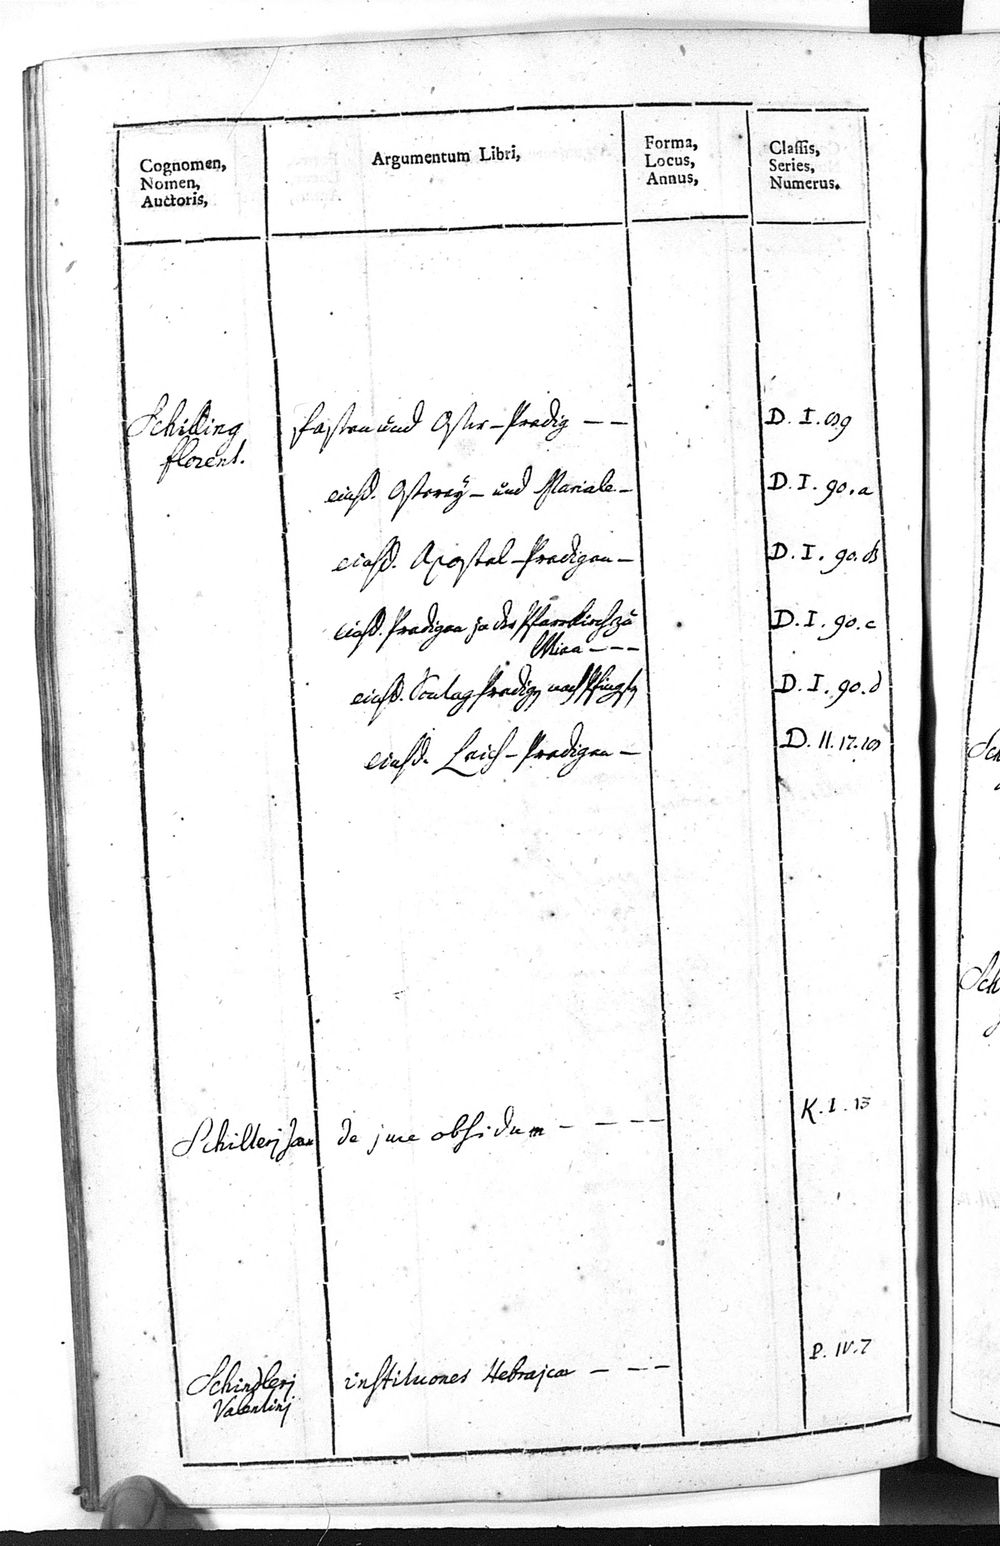 Cognomen,
Nomen,
Auctoris,
Argumentum Libri,
Forma,
Locus,
Annus,
Classis,
Series,
Numerus.
Schilling
florent.
fasten und Oster-Predig - -
D. I. 89
eiusd. und Mariale -
D. I. 90. a
eiusd. Apostel-Predigen -
D. I. 90. b
eiusd. Predigen in der Pfarrkirch zu
Wien - - -
D. I. 90. c
eiusd. Sontag Predig nach Pfingst
D. I. 90. d
eiusd. Leich-Predigen -
D. II. 17.
Schilterj Joan
de jure obsidum - - - -
K. I. 13
Schindlerj
Valentinj
institutiones Hebrajcae - - -
P. IV. 7
Sch
Sch